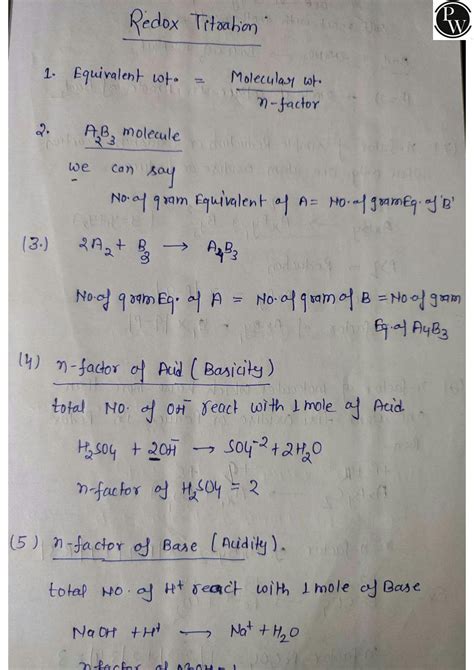 PW
Redox Titration
1. Equivalent wt. = Molecular wt. / n-factor
2. A₂B₃ molecule
we can say
No. of gram Equivalent of A = NO. of gramEq. of 'B'
(3.) 2A₂ + B₃ → A₄B₃
No. of gram Eq. of A = No. of gram of B = No of gram
Eq. of A4B3
(4) n-factor of Acid (Basicity)
total NO. of OH⁻ react with 1 mole of Acid
H₂SO₄ + 2OH⁻ → SO₄⁻² + 2H₂O
n-factor of H₂SO₄ = 2
(5) n-factor of Base (Acidity).
total NO. of H⁺ react with 1 mole of Base
NaOH + H⁺ → Na⁺ + H₂O
n-factor of NaOH = 1